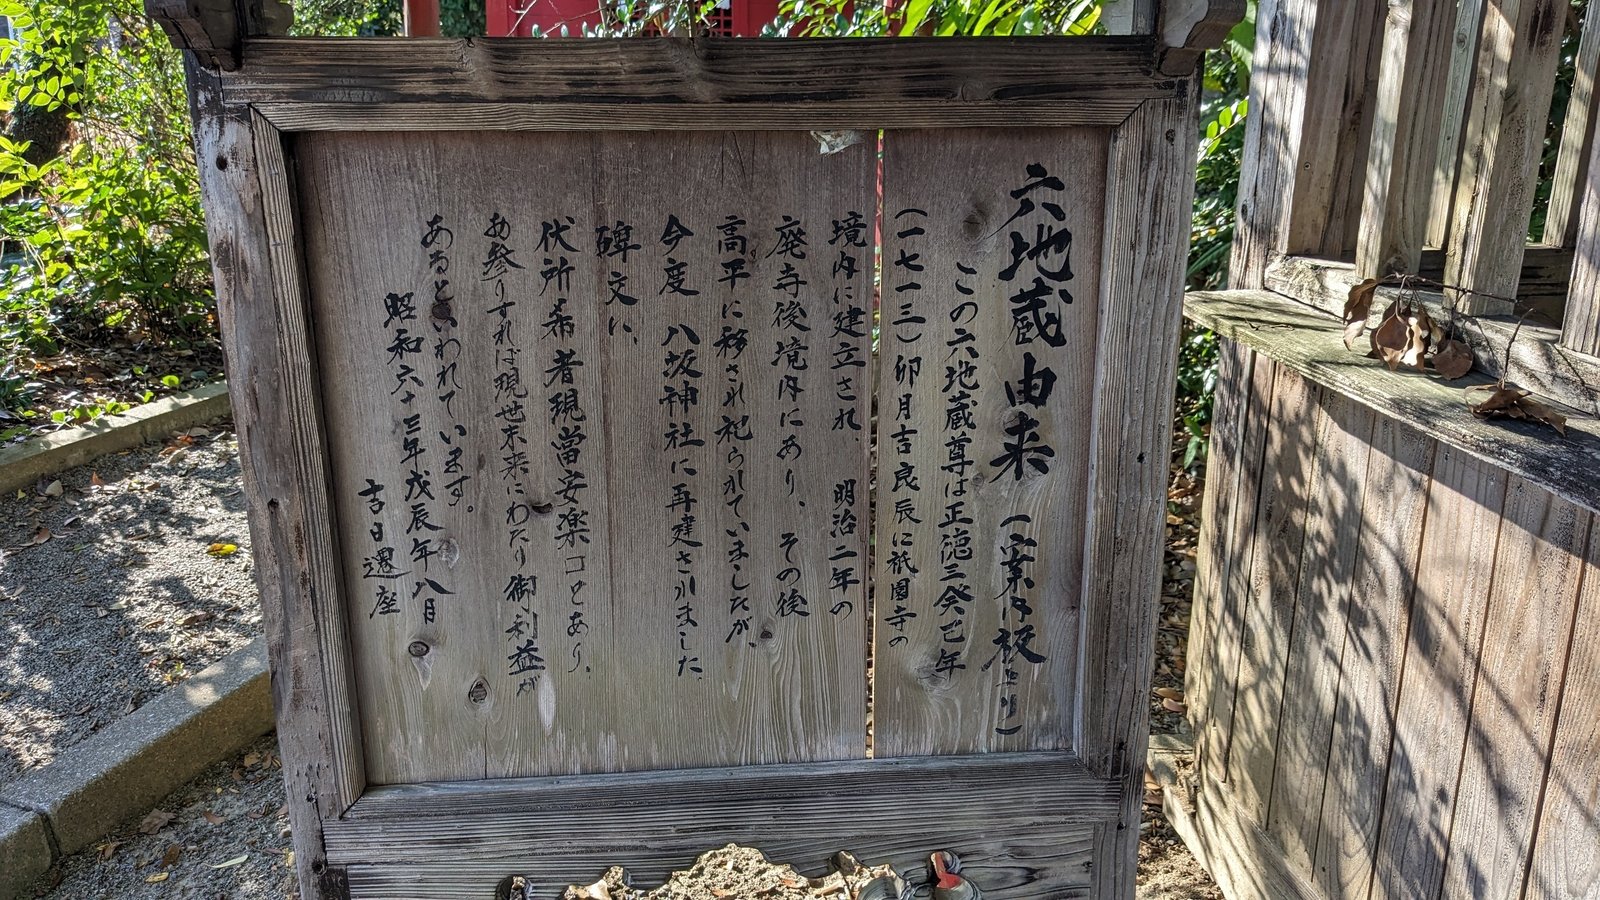 六地蔵由来 (案内板より)
この六地蔵尊は正徳三癸巳年
(一七一三)卯月吉良辰に祇園寺の
境内に建立され、明治二年の
廃寺後境内にあり、その後
高平に移され祀られていましたが、
今度 八坂神社に再建されました、
碑文に、
伏所希者現當安楽コとあり、
お参りすれば現世末来にわたり御利益が
あるといわれています。
昭和六十三年戊辰年八月
吉日遷座